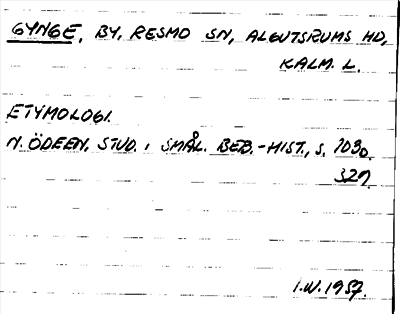 GYNGE, BY, RESMO SN, ALGUTSRUMS HD,
KALM. L.
ETYMOLOGI.
N. ÖDEEN, STUD. I SMÅL. BEB.-HIST., S. 103o.
327.
I.W. 1957.